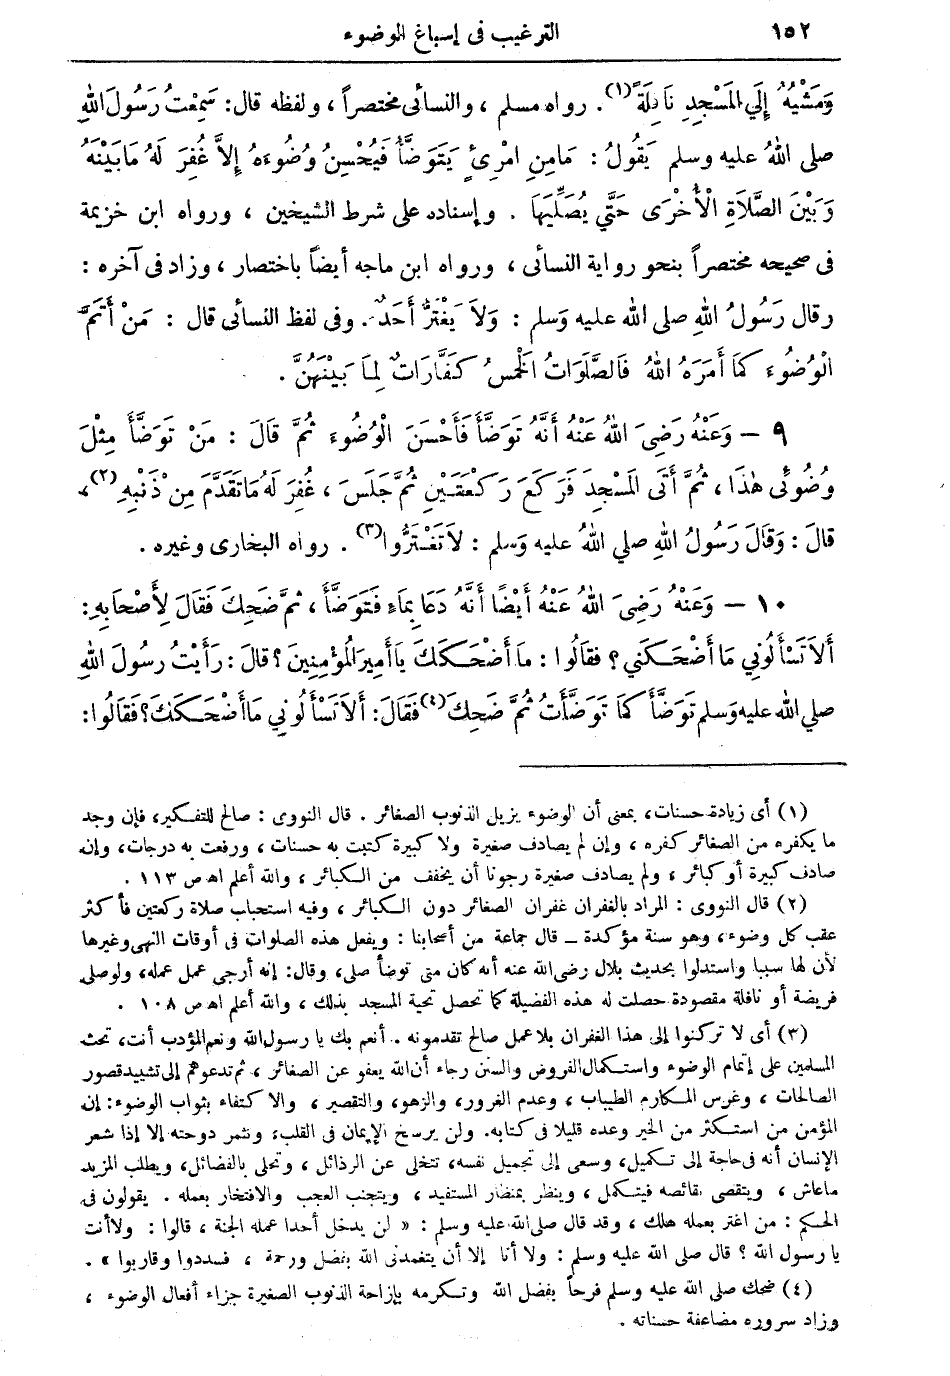 ١٥٢ الترغيب فى إسباغ الوضوء
وَمَشْيُهُ إِلَي الْمَسْجِدِ نَافِلَةً (١). رواه مسلم ، والنسائى مختصراً ، ولفظه قال: سَمِعْتُ رَسُولَ اللهِ
صلى اللهُ عليه وسلم يَقُولُ : مَامِنِ امْرِئٍ يَتَوَضَّأُ فَيُحْسِنُ وُضُوءَهُ إِلاَّ غُفِرَ لَهُ مَابَيْنَهُ
وَبَيْنَ الصَّلاَةِ الْأُخْرَى حَتَّي يُصَلِّيَهَا . وإسناده على شرط الشيخين ، ورواه ابن خزيمة
فى صحيحه مختصراً بنحو رواية النسائى ، ورواه ابن ماجه أيضاً باختصار ، وزاد فى آخره :
وقال رَسُولُ اللهِ صلى الله عليه وَسلم : وَلاَ يَغْتَرُّ أَحَدٌ. وفى لفظ النسائى قال : مَنْ أَتَمَّ
الْوُضُوءَ كَمَا أَمَرَهُ اللهُ فَالصَّلَوَاتُ الْخَمْسُ كَفَّارَاتٌ لِمَا بَيْنَهُنَّ .
٩ — وَعَنْهُ رَضِىَ اللهُ عَنْهُ أَنَّهُ تَوَضَّأَ فَأَحْسَنَ الْوُضُوءَ ثُمَّ قَالَ : مَنْ تَوَضَّأَ مِثْلَ
وُضُوئى هٰذَا ، ثُمَّ أَتَى الْمَسْجِدَ فَرَكَعَ رَكْعَتَيْنِ ثُمَّ جَلَسَ ، غُفِرَ لَهُ مَا تَقَدَّمَ مِنْ ذَنْبِهِ (٢)،
قالَ : وَقَالَ رَسُولُ اللهِ صلي اللهُ عليه وَسلم : لاَ تَغْتَرُّوا (٣) . رواه البخارى وغيره .
١٠ — وَعَنْهُ رَضِىَ اللهُ عَنْهُ أَيْضًا أَنَّهُ دَعَا بِمَاءٍ فَتَوَضَّأَ ، ثُمَّ ضَحِكَ فَقَالَ لِأَصْحَابِهِ :
أَلاَ تَسْأَلُونِي مَا أَضْحَكَنِي ؟ فقَالُوا : مَا أَضْحَكَكَ يَا أَمِيرَ الْمُؤْمِنِينَ ؟ قالَ : رَأَيْتُ رسولَ اللهِ
صلي الله عليه وَسلم تَوَضَّأَ كَمَا تَوَضَّأْتُ ثُمَّ ضَحِكَ (٤) فَقَالَ : أَلاَ تَسْأَلُونِي مَا أَضْحَكَكَ ؟ فقَالُوا :
(١) أى زيادة حسنات، بمعنى أن الوضوء يزيل الذنوب الصغائر . قال النووى : صالح للتفكير، فإن وجد
ما يكفره من الصغائر كفره ، وإن لم يصادف صغيرة ولا كبيرة كتبت به حسنات ، ورفعت به درجات، وإن
صادف كبيرة أو كبائر ، ولم يصادف صغيرة رجونا أن يخفف من الكبائر ، والله أعلم اه ص ١١٣ .
(٢) قال النووى : المراد بالغفران غفران الصغائر دون الكبائر ، وفيه استحباب صلاة ركعتين فأكثر
عقب كل وضوء، وهو سنة مؤكدة — قال جماعة من أصحابنا : ويفعل هذه الصلوات فى أوقات النهى وغيرها
لأن لها سببا واستدلوا بحديث بلال رضى الله عنه أنه كان متى توضأ صلى، وقال: إنه أرجى عمل عمله، ولوصلى
فريضة أو نافلة مقصودة حصلت له هذه الفضيلة كما تحصل تحية المسجد بذلك ، والله أعلم اه ص ١٠٨ .
(٣) أى لا تركنوا إلى هذا الغفران بلا عمل صالح تقدمونه . أنعم بك يا رسول الله ونعم المؤدب أنت، تحث
المسلمين على إتمام الوضوء واستكمال الفروض والسنن رجاء أن الله يعفو عن الصغائر ، ثم تدعوهم إلى تشييد قصور
الصالحات ، وغرس المكارم الطياب ، وعدم الغرور، والزهو، والتقصير ، والاكتفاء بثواب الوضوء: إن
المؤمن من استكثر من الخير وعده قليلا فى كتابه. ولن يرسخ الإيمان فى القلب، وتثمر دوحته إلا إذا شعر
الإنسان أنه فى حاجة إلى تكميل، وسعى إلى تجميل نفسه، تتخلى عن الرذائل ، وتحلى بالفضائل، ويطلب المزيد
ماعاش ، ويتقصى نقائصه فيتكمل ، وينظر بمنظار المستفيد ، ويتجنب العجب والافتخار بعمله . يقولون فى
الحكم : من اغتر بعمله هلك ، وقد قال صلى الله عليه وسلم : « لن يدخل أحدا عمله الجنة ، قالوا : ولا أنت
يا رسول الله ؟ قال صلى الله عليه وسلم : ولا أنا إلا أن يتغمدنى الله بفضل ورحمة ، فسددوا وقاربوا » .
(٤) ضحك صلى الله عليه وسلم فرحاً بفضل الله وتكرمه بإزاحة الذنوب الصغيرة جزاء أفعال الوضوء ،
وزاد سروره مضاعفة حسناته .